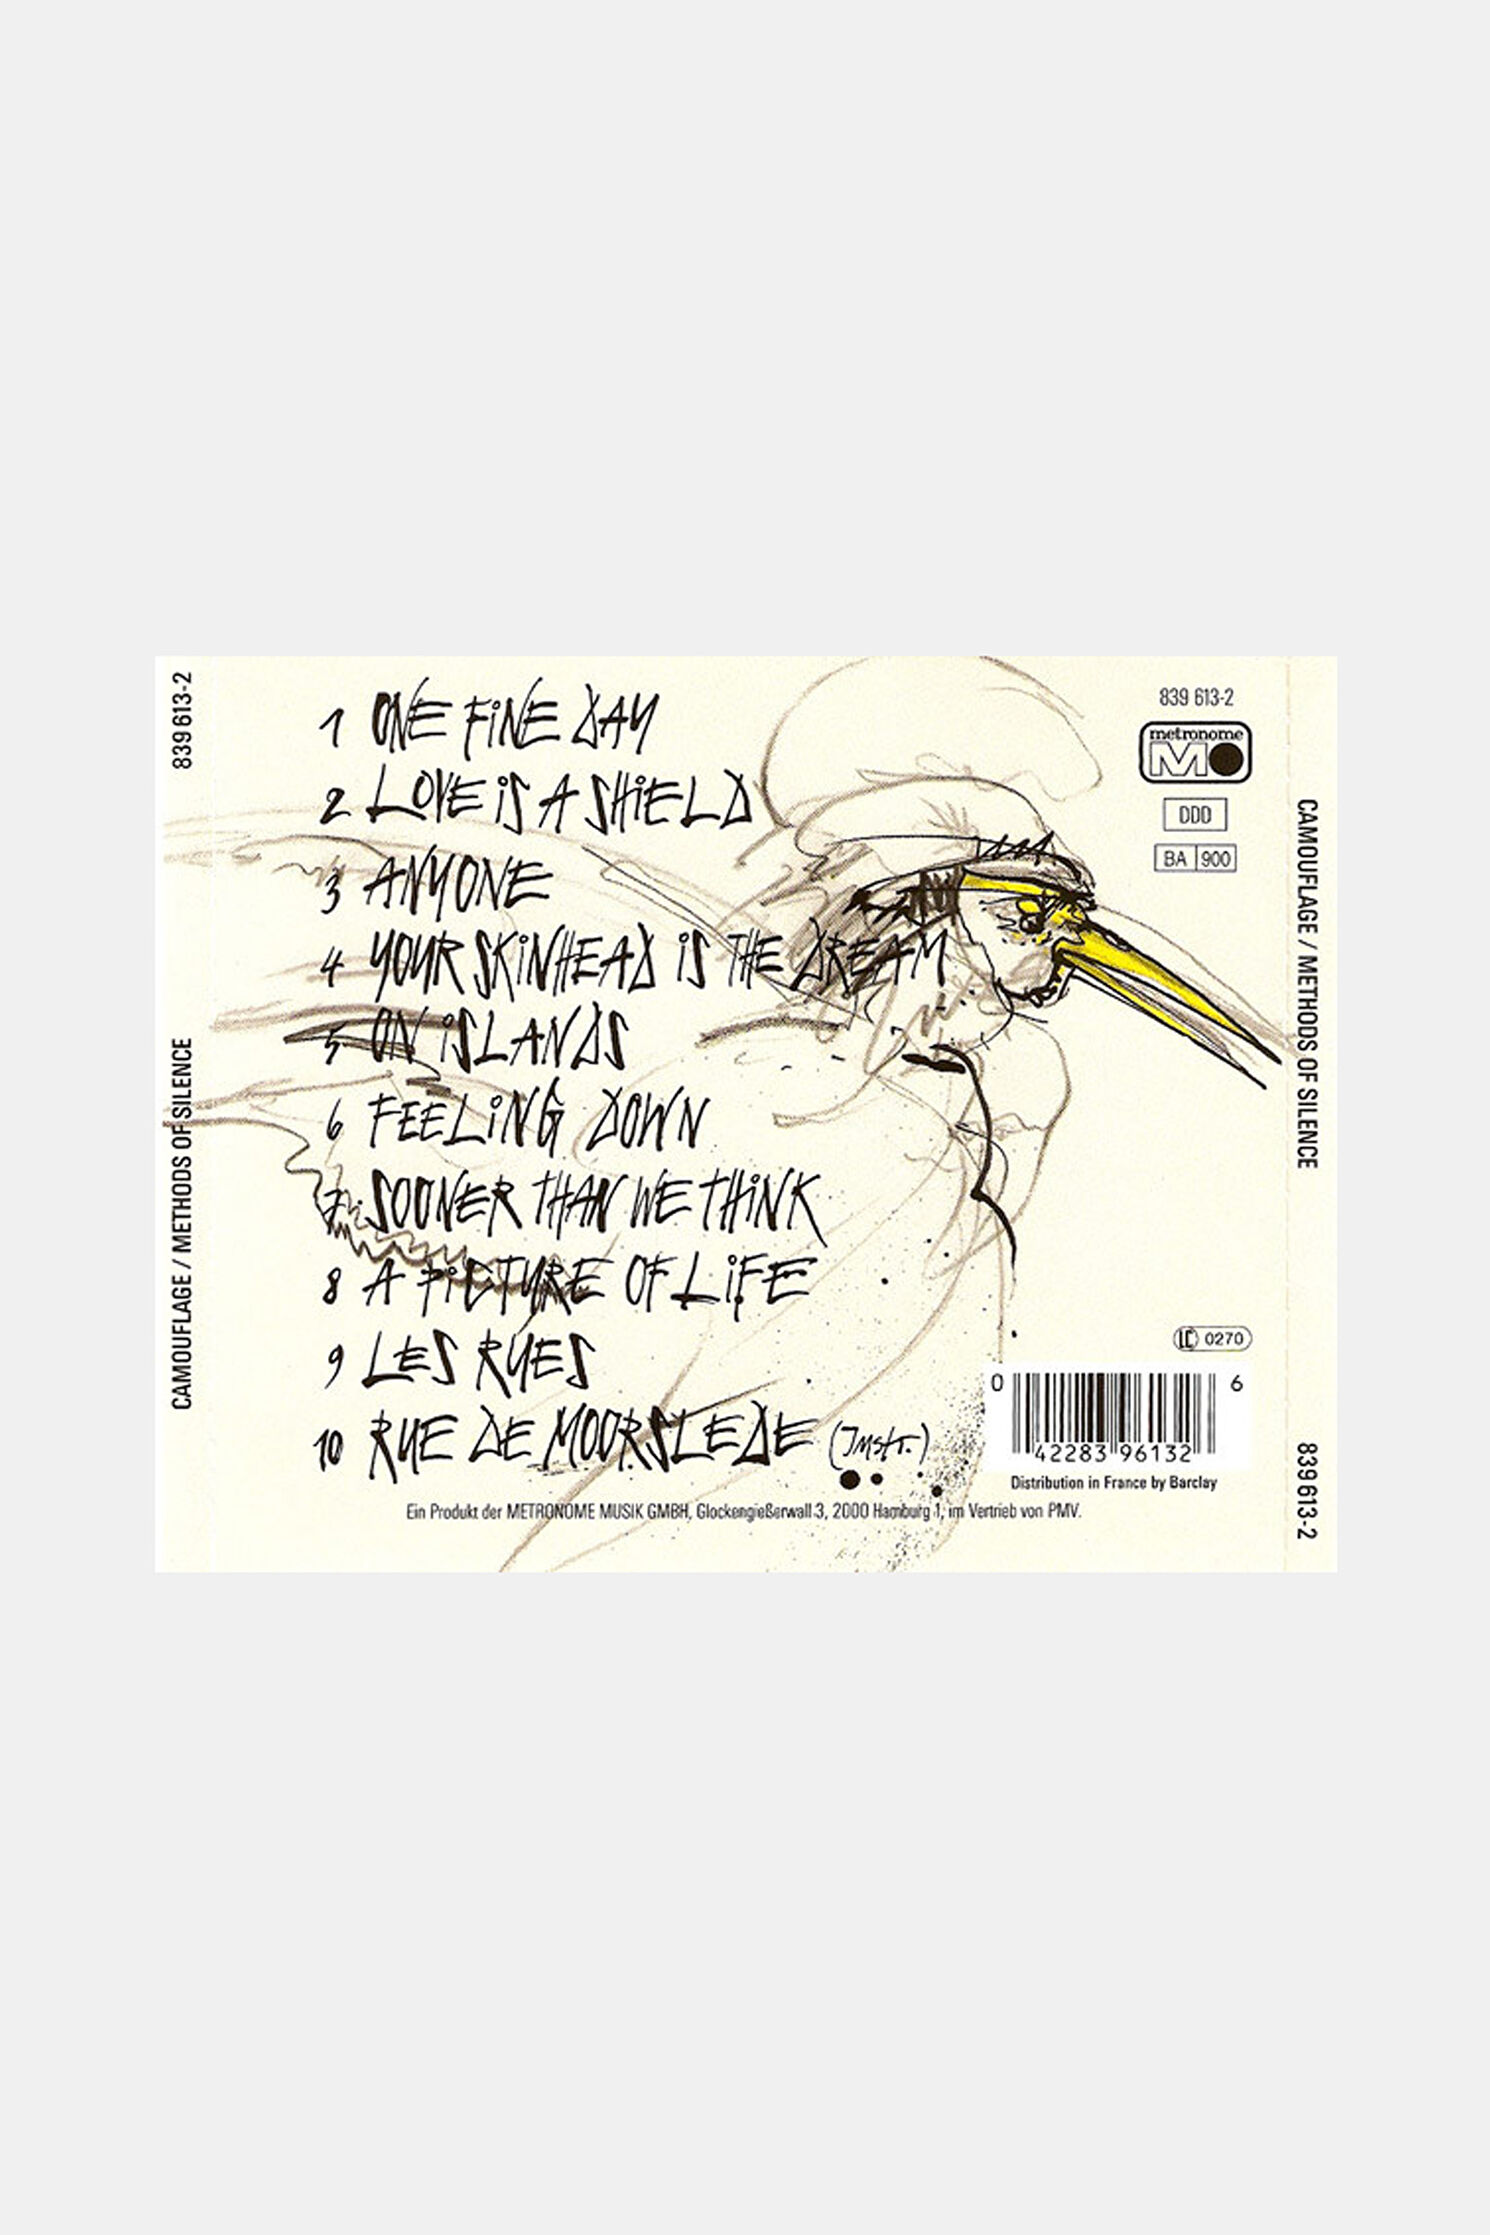 839 613-2
CAMOUFLAGE / METHODS OF SILENCE
1 ONE FiNE DAY
2 LOVE iS A SHiELD
3 ANYONE
4 YOUR SKiNHEAD iS THE DREAM
5 ON iSLANDS
6 FEELiNG DOWN
7 SOONER THAN WE THiNK
8 A PiCTURE OF LiFE
9 LES RUES
10 RUE DE MOORSLEDE (Instr.)
Ein Produkt der METRONOME MUSIK GMBH, Glockengießerwall 3, 2000 Hamburg 1, im Vertrieb von PMV.
839 613-2
metronome
M
DDD
BA 900
LC 0270
0 42283 96132 6
Distribution in France by Barclay
CAMOUFLAGE / METHODS OF SILENCE
839 613-2